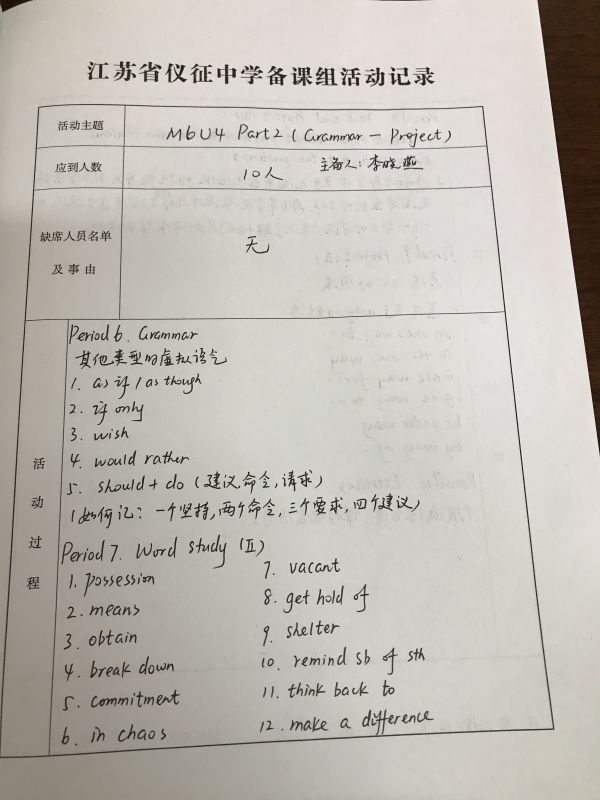 江苏省仪征中学备课组活动记录
活动主题 M6U4 Part2 (Grammar — Project)
应到人数 10人 主备人:李晓燕
缺席人员名单
及事由
无
活动过程
Period 6. Grammar
其他类型的虚拟语气
1. as if / as though
2. if only
3. wish
4. would rather
5. should + do (建议,命令,请求)
(如何记:一个坚持,两个命令,三个要求,四个建议)
Period 7. Word study (Ⅱ)
1. possession
2. means
3. obtain
4. break down
5. commitment
6. in chaos
7. vacant
8. get hold of
9. shelter
10. remind sb of sth
11. think back to
12. make a difference